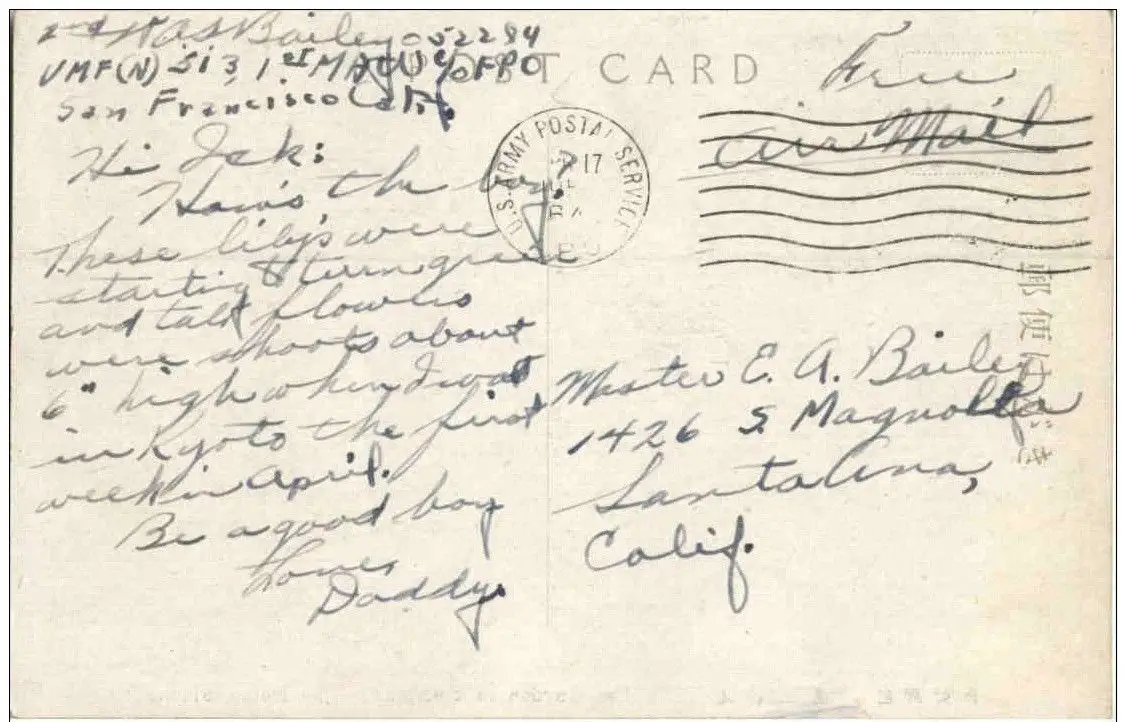 Bailey 052294
VMF(N) 513, 1st MAW c/o FPO
San Francisco Calif.
POST CARD
Free
Air Mail
U.S. ARMY POSTAL SERVICE
17
Hi Jck:
How's the boy
These lily's were
starting to turn green
and tall flowers
were shoots about
6" high when I was
in Kyoto the first
week in April.
Be a good boy
Love
Daddy.
Master E. A. Bailey
1426 S. Magnolia
Santa Ana,
Calif.
郵便